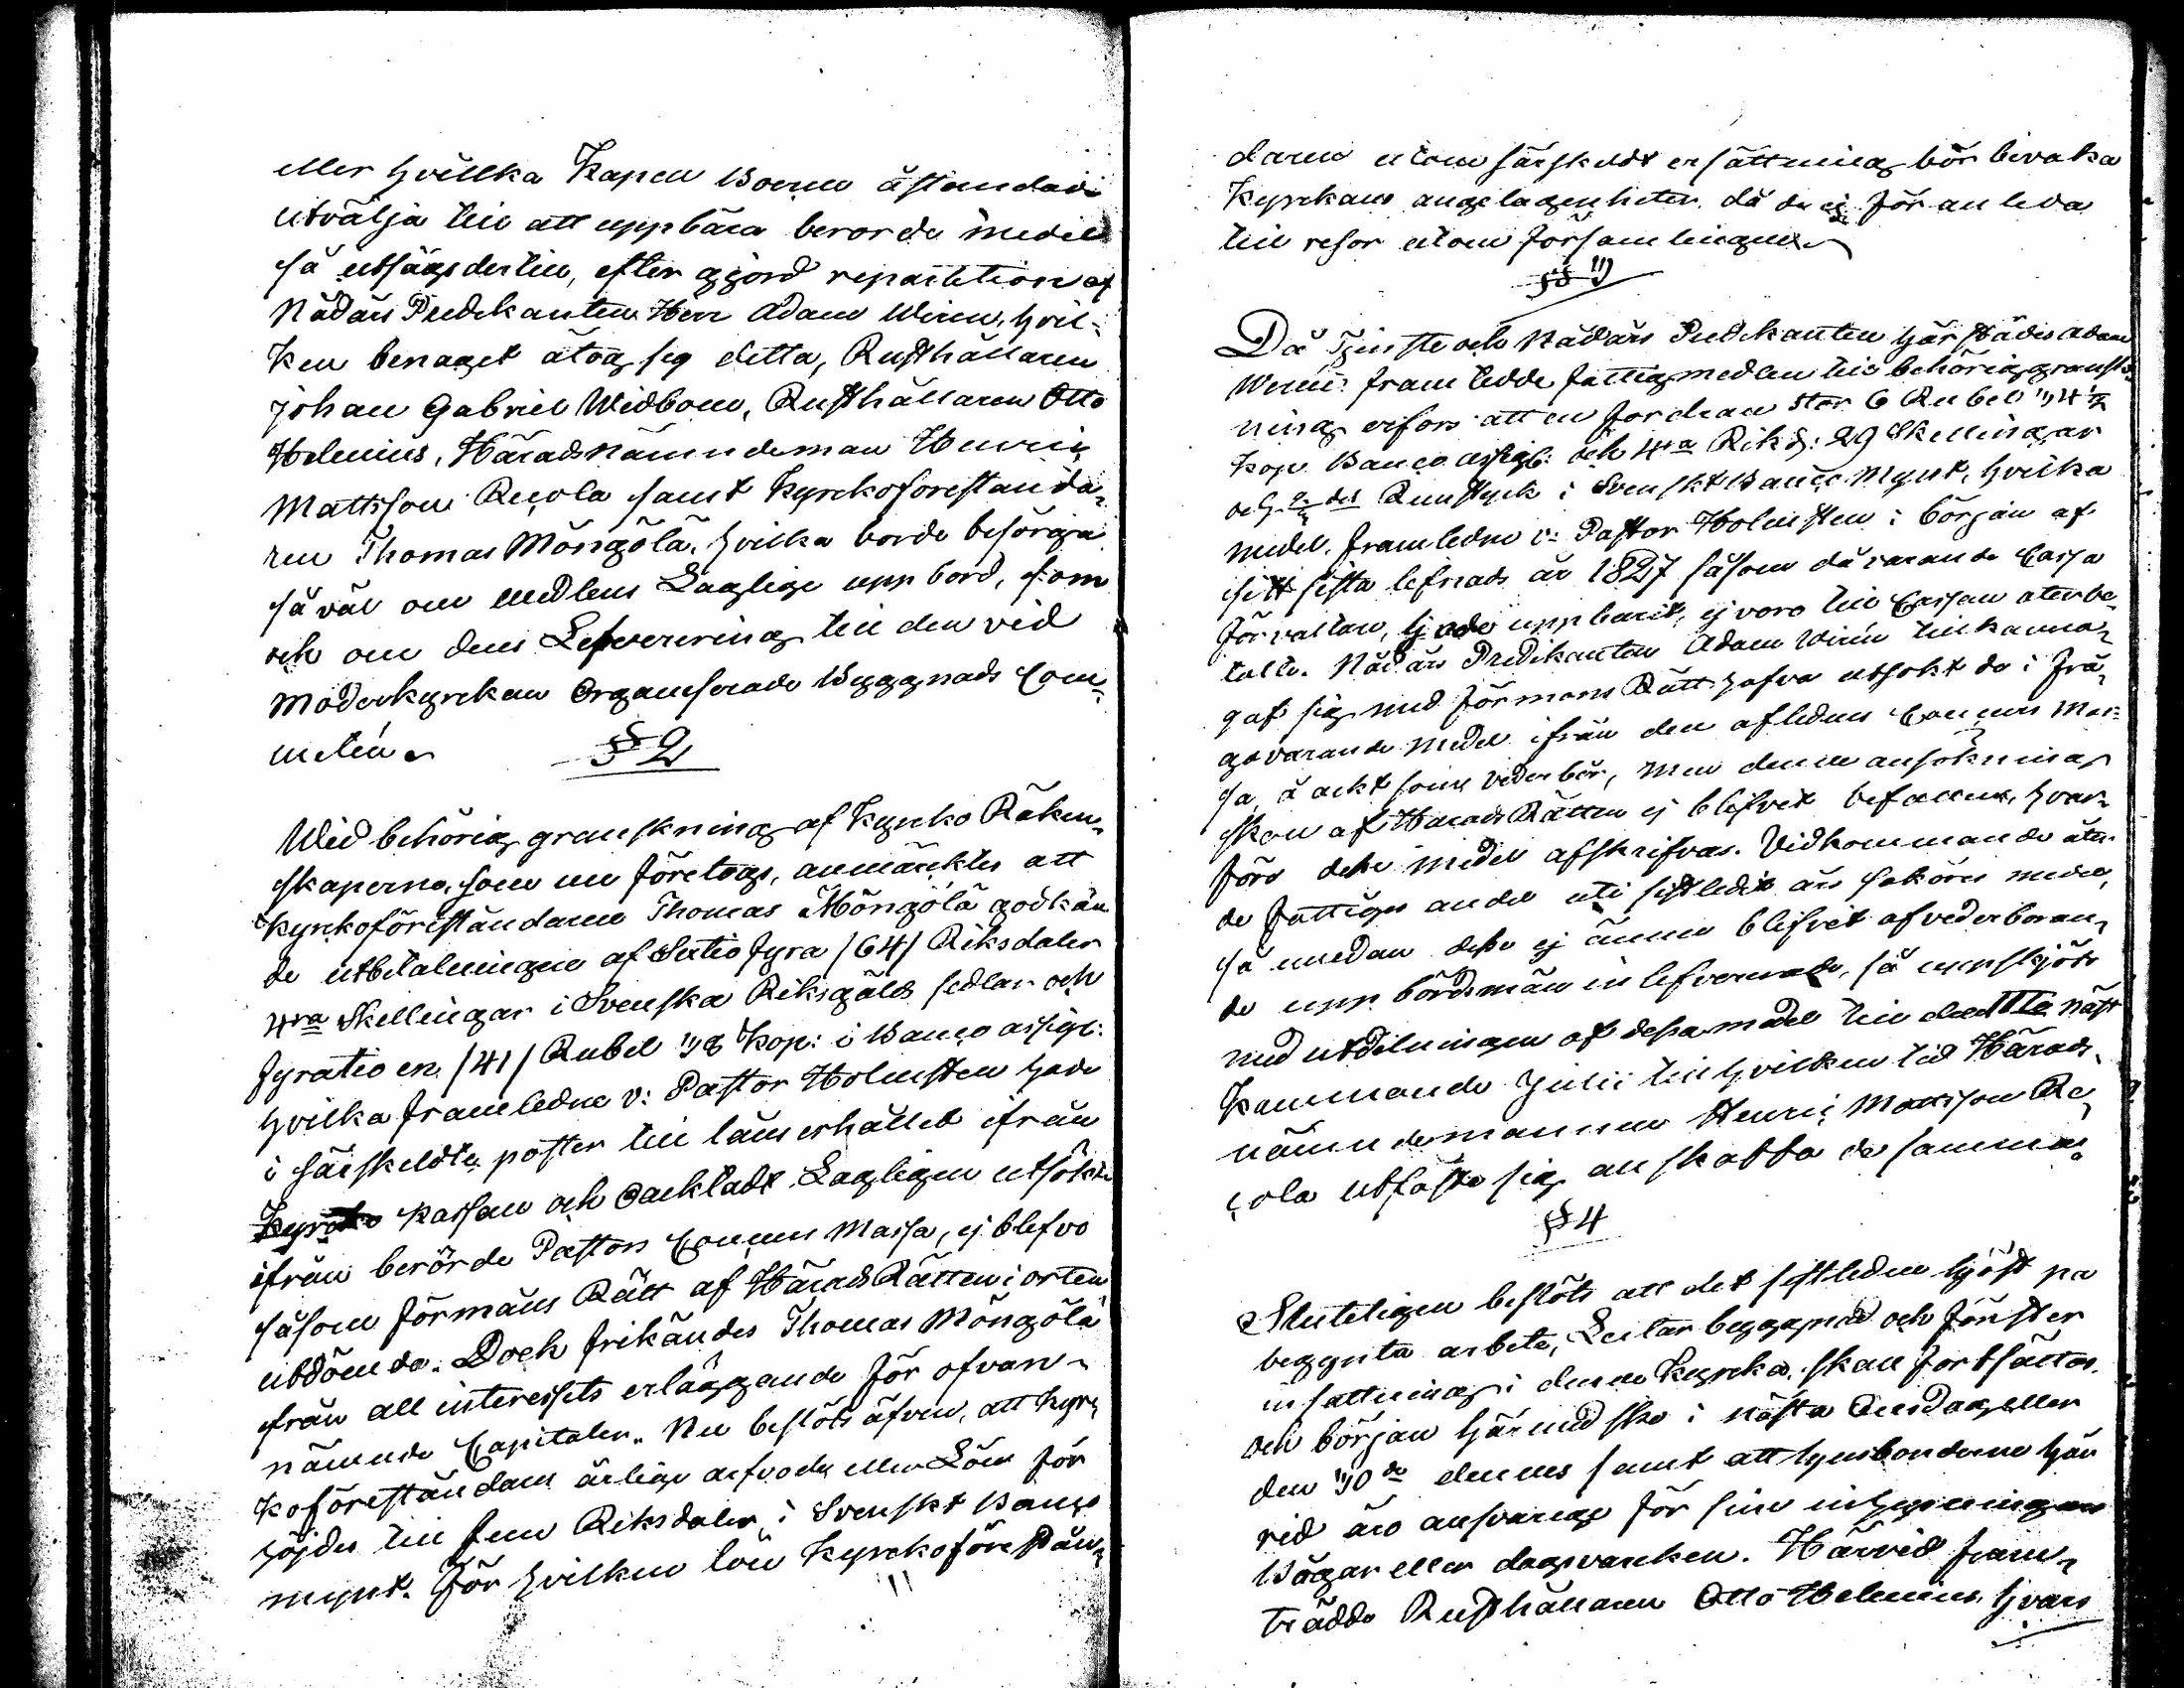 eller hvillka Kapell Boerne åstundade
utvälja till att uppbära berorde medel
så utsågs dertill, efter gjord repartition af
Nådårs Predikanten Herr Adam Wirén, hvil-
ken benaget åtog sig detta, Rusthållaren
Johan Gabriel Widbom, Rusthållaren Otto
Helenius, Häradsnämndeman Henric
Mattsson Recola samt Kyrckoforestanda-
ren Thomas Möngölä, hvilka borde besörja
så väl om medlens Laglige uppbord, som
och om dens Lefverering till den vid
Moderkyrckan Organiserade Byggnads Com-
mitén.
§ 2
Wid behörig granskning af Kyrcko Räken-
skaperna, som nu företogs, anmärcktes att
Kyrckoföreståndaren Thomas Möngölä godkän
de utbetalningen af Sextio fyra /64/ Riksdaler
4ra Skellingar i Svenska Riksgälds sedlar och
fyratio en /41/ Rubel 98 Kop: i Banco assign:
hvilka framledne v: Pastor Holmsten hade
i särskeldta poster till låns erhållit ifrån
Kyrcko kassan och oacktadt Lagligen utsökte
ifrån berörde Pastors Concurs Massa, ej blefvo
såsom förmåns Rätt af Härads Rätten i orten
utdömda. Doch frikändes Thomas Möngölä
från all interessets erläggande för ofvan-
nämnde Capitaler. Nu beslöts äfven, att Kyrc-
koföreståndans årlige arfvode eller Lön för
höjdes till fem Riksdaler i Svenskt Banco
mynt. För hvilken lön Kyrckoförestån-
daren utom särskeldt ersättning bör bivaka
Kyrckans angelagenheter då de ej föranleda
till resor utom Församlingen
§ 3
Då Tjenste och Nådårs Predikanten härstädes Adam
Wirén framtedde fattigmedlen till behörig gransk-
ning erfors att en fordran stor 6 Rubel 94 ½
Kop. Banco assign: och 4ra Riksd: 29 Skellingar
och Runstyck i Svenskt Banco Mynt, hvilka
medel, framledne v: Pastor Holmsten i början af
sitt sista lefnads år 1827 såsom då varande Cassa
förvaltare, hade uppburit, ej voro till Cassan återbe-
talte. Nådårs Predikanten Adam Wirén tillkänna-
gaf sig med förmons Rätt hafva utsökt de i frå-
gavarande medel ifrån den aflednes Concurs Mas-
sa, å ackt som vederbör, men denne ansökning
skall af Härads Rätten ej blifvit befallen, hvar-
före desse medel afskrifvas. Vidkommande åter
de fattiges andel uti sistledit års saköres medel,
så emedan desse ej ännu blifvit af vederboran-
de uppbördsmän inlefvererade, så uppskjöts
med utdelningen af dessa medel till den näst
kommande Julii till hvilken tid Härads
nämndemannen Henric Mattsson Re-
cola utfäste sig anskaffa de samma.
§ 4
Sluteligen beslöts att det sistledne höst på
begynta arbete, Lecktar beggnad och fönster
insattning i denne Kyrcka, skall fortsättas
och början härmed ske i nästa Onsdag eller
den 10de dennes samt att husbonderne här
vid äro ansvarige för sine inhysningars
Bågar eller dagsvärcken. Härvid fram-
trädde Rusthållaren Otto Helenius, hvars